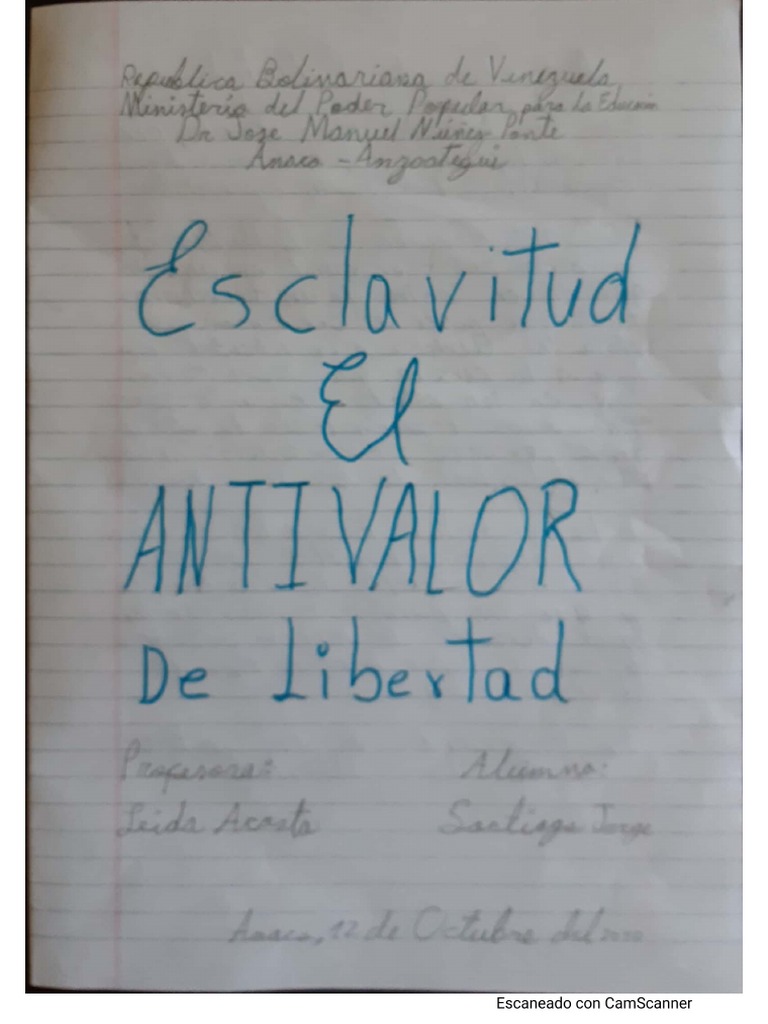 Republica Bolivariana de Venezuela
Ministerio del Poder Popular para la Educación
Dr Jose Manuel Núñez Ponte
Anaco - Anzoategui
Esclavitud
El
ANTIVALOR
De Libertad
Profesora: Alumno:
Leida Acosta Santiago Jorge
Anaco, 12 de Octubre del 2020
Escaneado con CamScanner